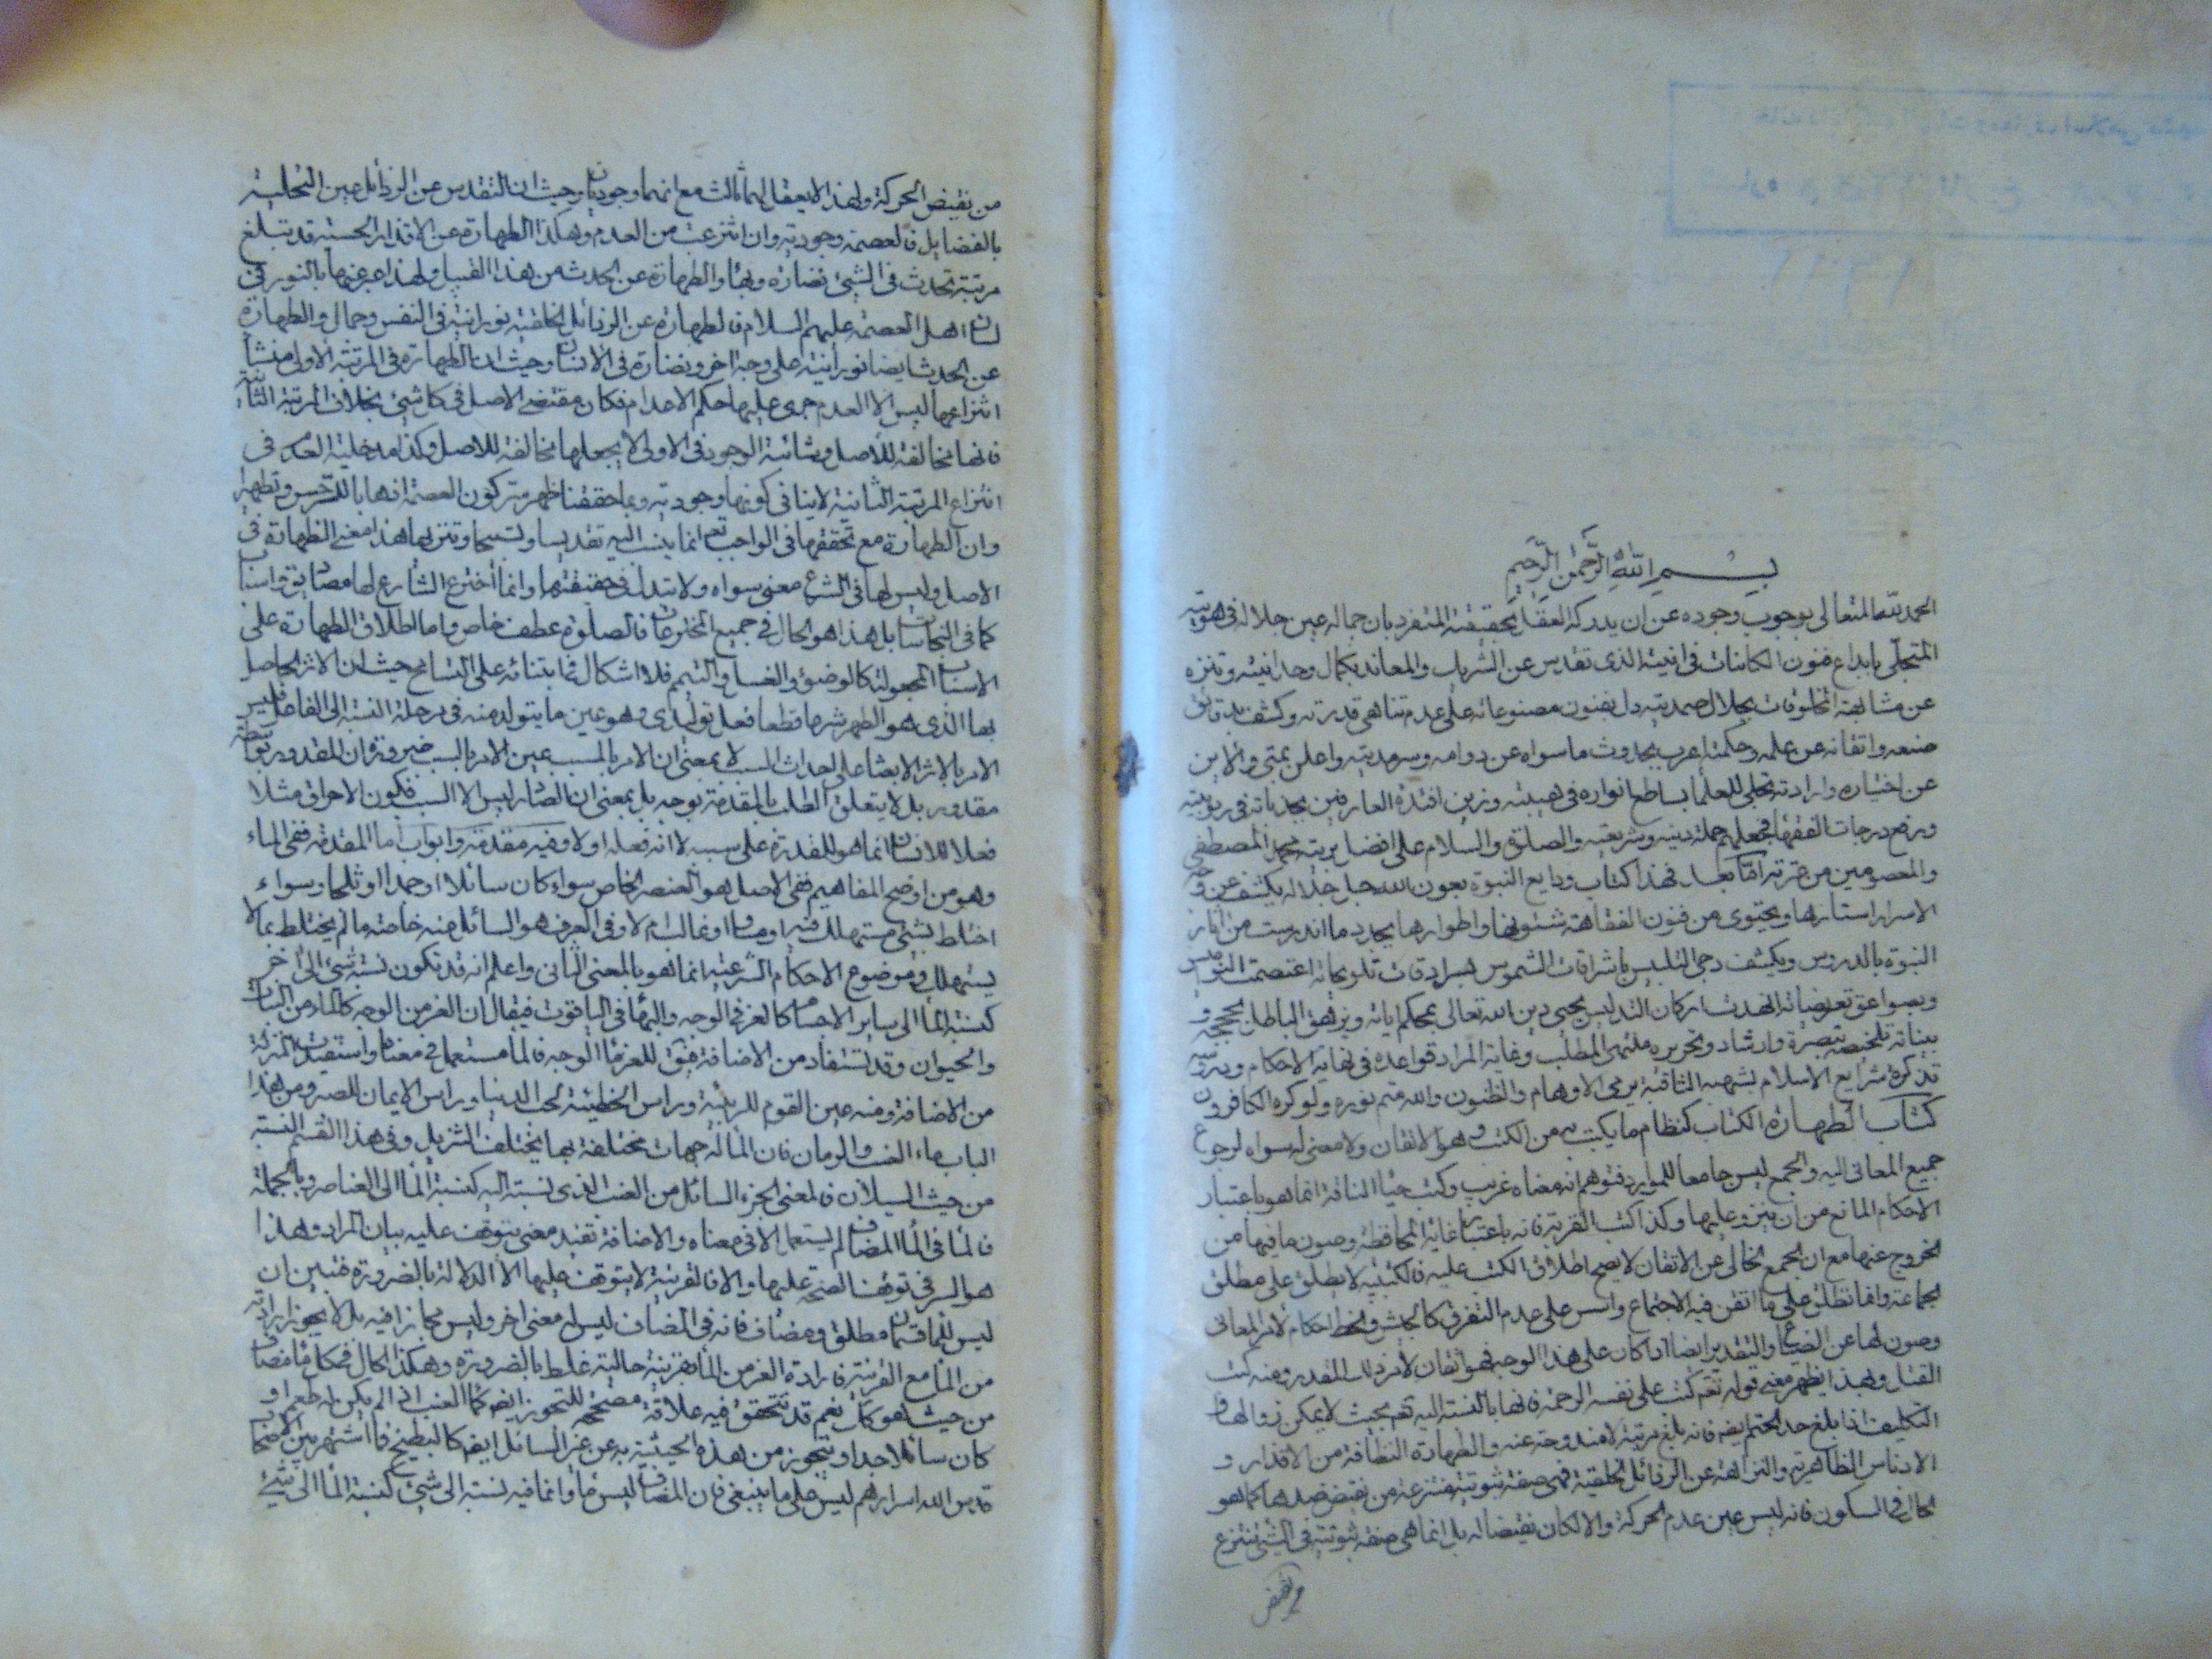 بسم الله الرحمن الرحيم
الحمد لله المتعالى بوجوب وجوده عن ان يدركه العقل بحقيقته المتفرد بان جماله عين جلاله فى هويته
المتجلى بابداع فنون الكاينات فى انيته الذى تقدس عن الشريك والمعاند بكمال وحدانيته وتنزه
عن مشابهة المخلوقات بجلال صمديته دل بفنون مصنوعاته على عدم تناهى قدرته وكشف بدقايق
صنعه واتقانه عن علمه وحكمته اعرب بحدوث ما سواه عن دوامه وسرمديته واعلن بمتى والاين
عن اختياره وارادته تجلى للعلما بساطع انواره فى هيبته وزين افئدة العارفين بجذباته فى ربوبيته
ورفع درجات الفقها فجعلهم حملة دينه وشريعته والصلوة والسلام على افضل بريته محمد المصطفى
والمعصومين من عترته اما بعد فهذا كتاب ودايع النبوة بعون الله جل جلاله يكشف عن
الاسرار استارها ويحتوى من فنون الفقاهة شئونها واطوارها يجدد ما اندرست من اثار
النبوة بالدروس ويكشف دجى التلبيس باشراقات الشموس
وبصواعق تعريضاته انهدت اركان التدليس يحيى دين الله تعالى بمحكم اياته ويزهق الباطل بحججه و
بيناته تلخيصه تبصرة وارشاد وتحريره منتهى المطلب وغاية المراد قواعده فى نهاية الاحكام
تذكرة شرايع الاسلام بشهبه الثاقبة يرمى الاوهام والظنون والله متم نوره ولو كره الكافرون
كتاب الطهارة الكتاب كنظام ما يكتب به من الكتب وهو الاتقان ولا معنى له سواه لرجوع
جميع المعانى اليه والجمع ليس جامعا للموارد فتوهم انه معناه غريب وكتب حيا الناقة انما هو باعتبار
الاحكام المانع من ان ينزو عليها وكذا كتب القربة فانه باعتبار غاية المحافظة وصون ما فيها من
الخروج عنها مع ان الجمع الخالى عن الاتقان لا يصح اطلاق الكتب عليه فالكتيبة لا يطلق على مطلق
الجماعة وانما تطلق على ما اتقن فيه الاجتماع واسس على عدم التفرق كالجيش والخط احكام لامر المعانى
وصون لها عن الضياع والتقدير ايضا اذا كان على هذا الوجه فهو اتقان لامر ذلك المقدر ومنه كتب
القتل وبهذا يظهر معنى قوله تعم كتب على نفسه الرحمة فانها بالنسبة اليه تعم بحيث لا يمكن زوالها و
التكليف اذا بلغ حد الحتم ايضه فانه بلغ مرتبة لا مندوحة عنه والطهارة النظافة من الاقذار و
الادناس الظاهرية والنزاهة عن الرذائل الخلقية فهى صفة ثبوتية منتزعة من نقيض ضدها كما هو
الحال فى السكون فانه ليس عين عدم الحركة والا لكان نقيضا له بل انما هى صفة ثبوتية فى الشئ ينتزع
من نقيض
من نقيض الحركة ولهذا لا يعقل لهما ثالث مع انهما وجوديان وحيث ان التقدس عن الرذايل عين التحلية
بالفضايل فالعصمة وجودية وان انتزعت من العدم وهكذا الطهارة عن الاقذار الحسية قد تبلغ
مرتبة تحدث فى الشئ نضارة وبهاء والطهارة عن الحدث من هذا القبيل ولهذا عبر عنها بالنور فى
لسان اهل العصمة عليهم السلام فالطهارة عن الرذائل الخلقية نورانية فى النفس وجمال والطهارة
عن الحدث ايضا نورانية على وجه اخر ونضارة فى الانسان وحيث ان الطهارة فى المرتبة الاولى منشأ
انتزاعها ليس الا العدم جرى عليها حكم الاعدام فكان مقتضى الاصل فى كل شئ بخلاف المرتبة الثانية
فانها مخالفة للاصل وشائبة الوجود فى الاولى لا يجعلها مخالفة للاصل وكذا مدخلية العدم فى
انتزاع المرتبة الثانية لا ينافى كونها وجودية وبما حققنا ظهر سر كون العصمة اذهابا للرجس وتطهيرا
وان الطهارة مع تحققها فى الواجب تعم انما ينسب اليه تقديسا وتسبيحا وتنزيها هذا معنى الطهارة فى
الاصل وليس لها فى الشرع معنى سواه ولا تبدل فى حقيقتها وانما اخترع الشارع لها مصاديق واسبابا
كما فى النجاسات بل هذا هو الحال فى جميع المخترعات فالصلوة عطف خاص واما اطلاق الطهارة على
الاسباب المجعولة كالوضوء والغسل والتيمم فلا اشكال فى ابتنائه على التسامح حيث ان الاثر الحاصل
بها الذى هو الطهر شرعا قطعا فعل توليدى وهو عين ما يتولد منه فى مرحلة النسبة الى الفاعل فليس
الامر بالاثر الا بعثا على احداث السبب لا بمعنى ان الامر بالمسبب عين الامر بالسبب ضرورة ان المقدور بواسطة
مقدور بل لا يتعلق الطلب بالمقدمة بوجه بل بمعنى ان الصادر ليس الا السبب فكون الاحراق مثلا
فعلا للانسان انما هو للقدرة على سببه لا انه فعله اولا وفيه مقدمة وابواب اما المقدمة ففى الماء
وهو من اوضح المفاهيم ففى الاصل هو العنصر الخاص سواء كان سائلا او جمدا او ثلجا وسواء
اختلط بشئ مستهلك فيه او مساو او غالب ام لا وفى العرف هو السائل منه خاصة ما لم يختلط بما لا
يستهلك وموضوع الاحكام الشرعية انما هو بالمعنى الثانى واعلم انه قد تكون نسبة شئ الى اخر
كنسبة الماء الى ساير الاجسام كالغر فى الوجه والبهاء فى الياقوت فيقال ان الغر من الوجه كالماء من النبات
والحيوان وقد تستفاد من الاضافة فيق للغر ماء الوجه فالماء مستعمل فى معناه واستفيدت المنزلة
من الاضافة ومنه عين القوم للربيئة وراس الخطيئة لحب الدنيا وراس الايمان للصبر ومن هذا
الباب ماء العنب والرمان فان الماء له جهات مختلفة بها يختلف التنزيل وفى هذا القسم النسبة
من حيث السيلان فالمعنى الجزء السائل من العنب الذى نسبته اليه كنسبة الماء الى العناصر وبالجملة
فالماء فى الماء المضاف لم يستعمل الا فى معناه والاضافة تفيد معنى يتوقف عليه بيان المراد وهذا
هو السر فى توقف الصحة عليها والا فالقرينة لا يتوقف عليها الا الدلالة بالضرورة فتبين ان
ليس للماء قسمان مطلق ومضاف فانه فى المضاف ليس له معنى اخر وليس مجازا فيه بل لا يجوز ارادته
من الماء مع القرينة فارادة الغر من الماء بقرينة حالية غلط بالضرورة وهكذا الحال فى كل ماء مضاف
من حيث هو كك نعم قد تتحقق فيه علاقة مصححة للتجوز ايضه كماء العنب اذا لم يكن له طعم او
كان سائلا جدا ويتجوز من هذه الحيثية به عن غير السائل ايضه كالبطيخ فما اشتهر بين الاصحاب
قدس الله اسرارهم ليس على ما ينبغى فان المضاف ليس ماء وانما فيه نسبة الى شئ كنسبة الماء الى شئ